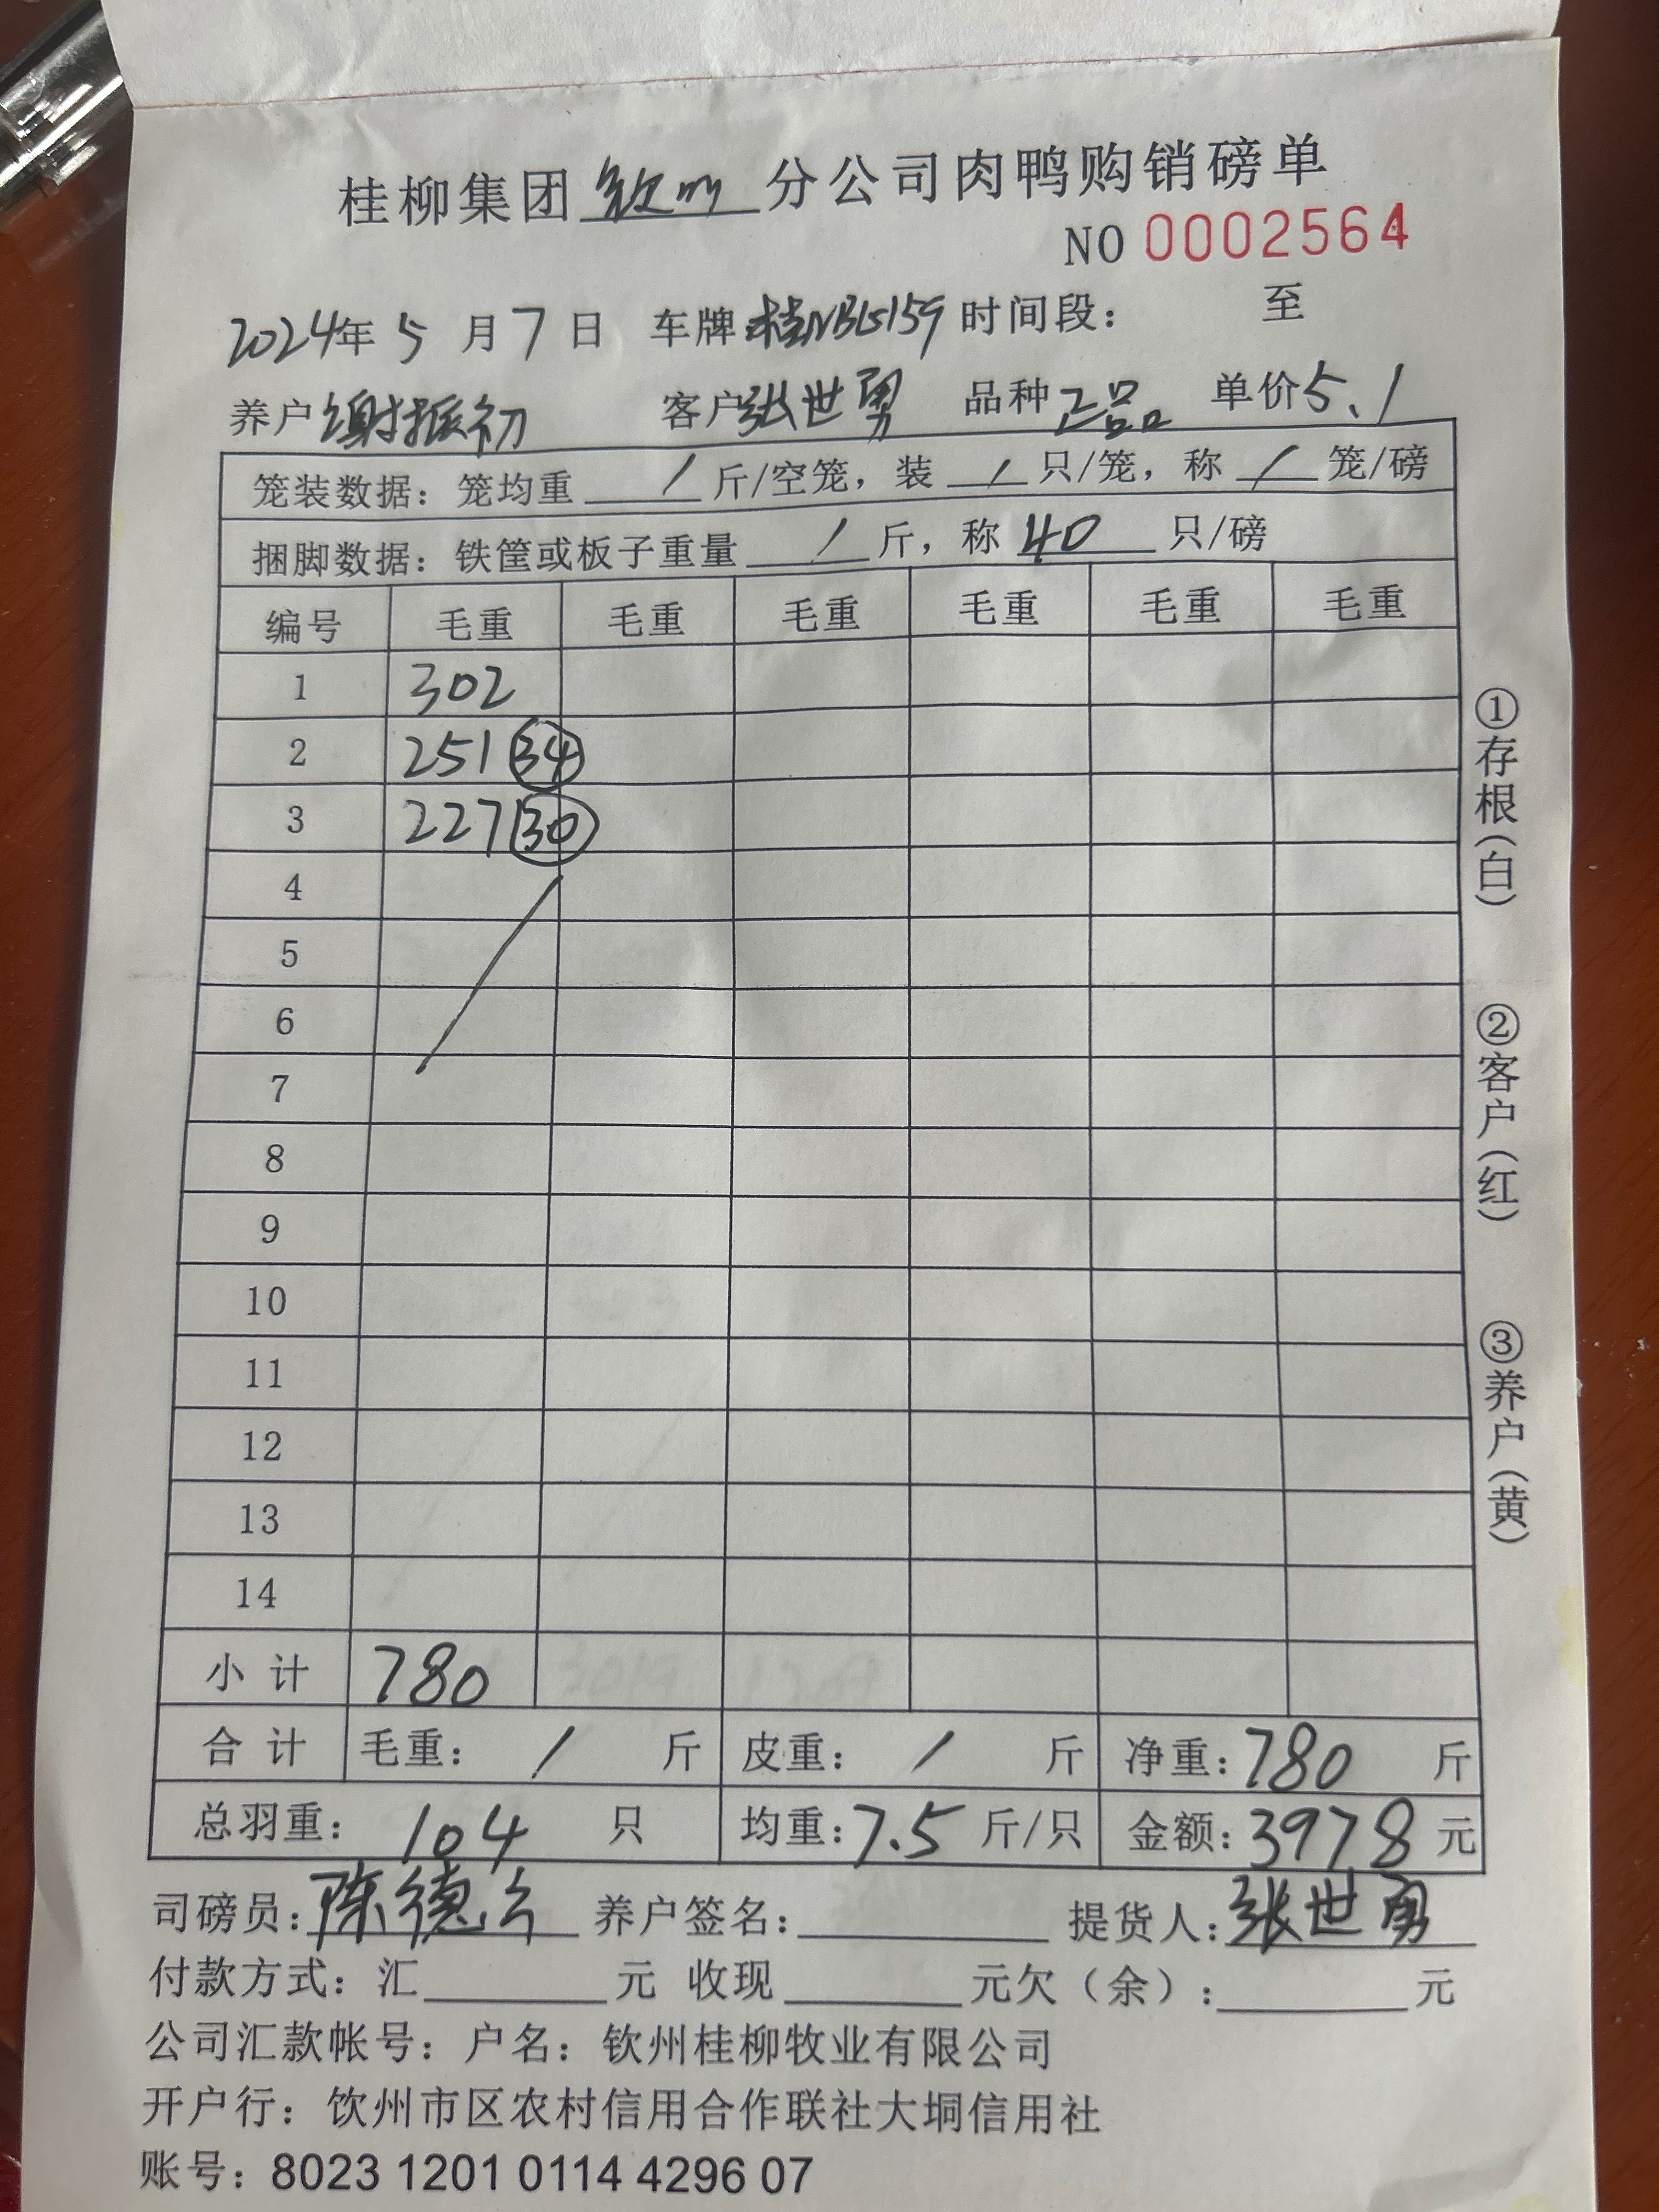 桂柳集团钦州分公司肉鸭购销磅单
NO 0002564
2024年5月7日 车牌桂NBL5159 时间段： 至
养户谢振初 客户张世勇 品种正品 单价5.1
笼装数据：笼均重 / 斤/空笼，装 / 只/笼，称 / 笼/磅
捆脚数据：铁筐或板子重量 / 斤，称 40 只/磅
编号 毛重 毛重 毛重 毛重 毛重 毛重
1 302
2 251 34
3 227 30
4
5
6
7
8
9
10
11
12
13
14
小计 780
合计 毛重： / 斤 皮重： / 斤 净重：780 斤
总羽重： 104 只 均重：7.5 斤/只 金额：3978 元
司磅员：陈德 养户签名： 提货人：张世勇
付款方式：汇 元 收现 元欠（余）： 元
公司汇款帐号：户名：钦州桂柳牧业有限公司
开户行：饮州市区农村信用合作联社大垌信用社
账号：8023 1201 0114 4296 07
①存根（白）
②客户（红）
③养户（黄）